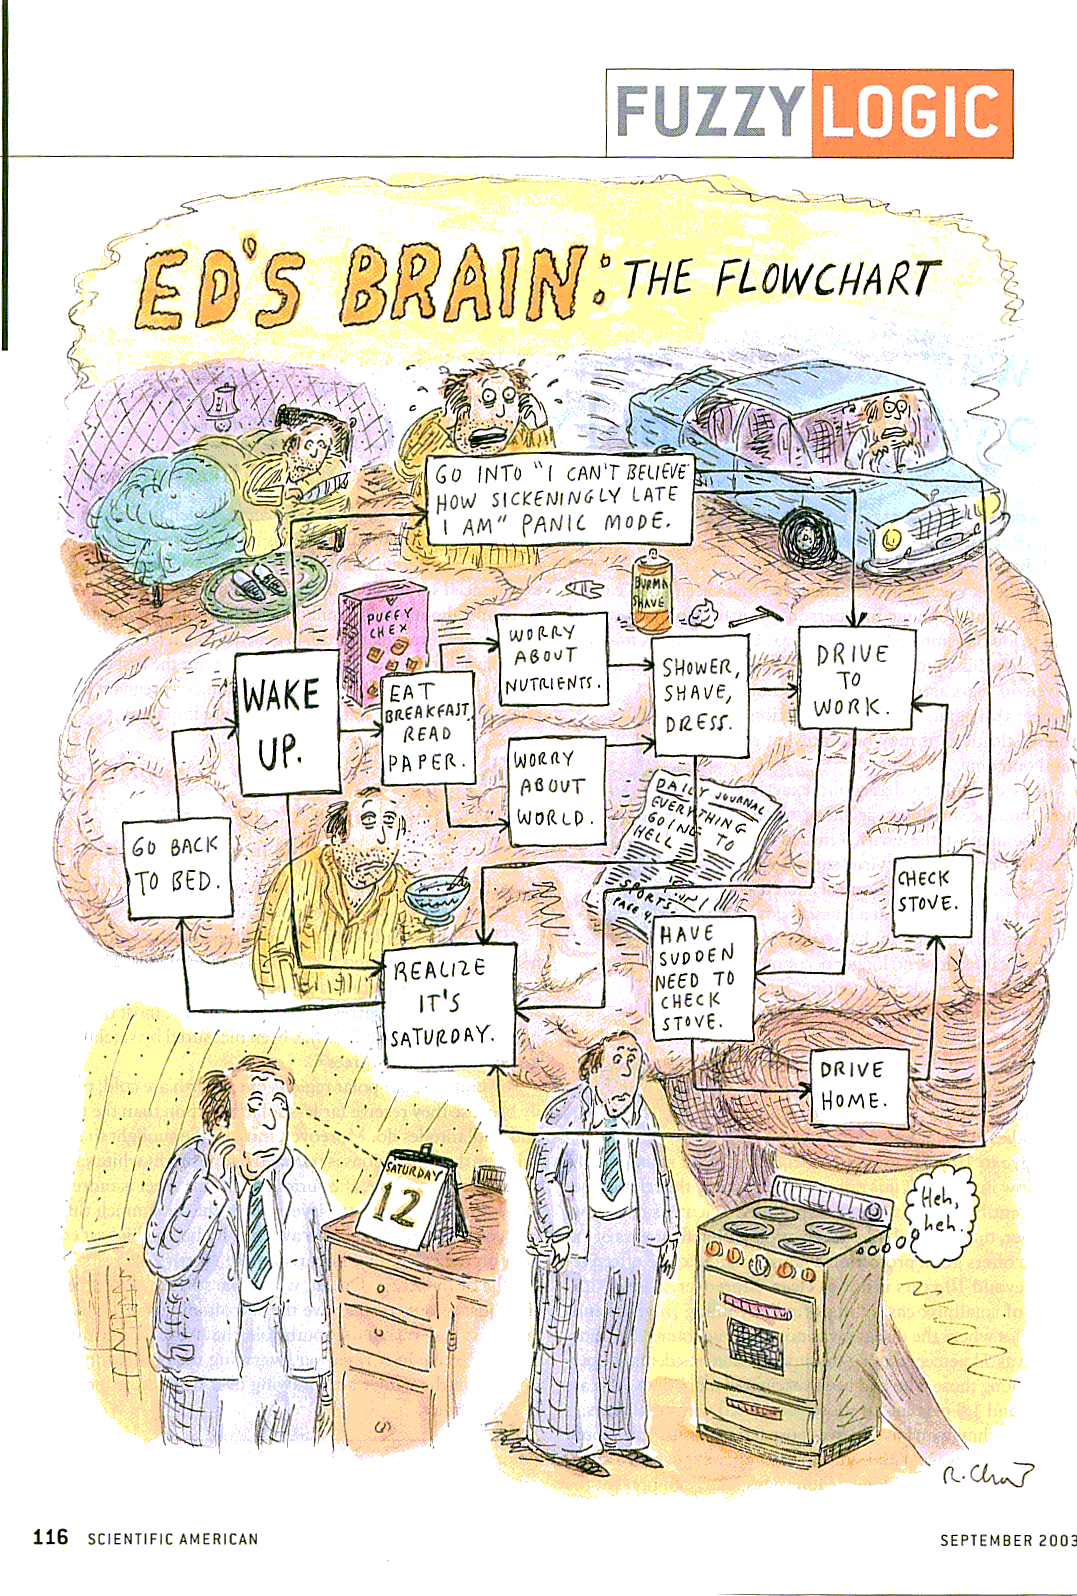 FUZZY LOGIC
ED'S BRAIN: THE FLOWCHART
GO INTO "I CAN'T BELIEVE
HOW SICKENINGLY LATE
I AM" PANIC MODE.
BURMA
SHAVE
PUFFY
CHEX
WORRY
ABOUT
NUTRIENTS.
SHOWER,
SHAVE,
DRESS.
DRIVE
TO
WORK.
WAKE
UP.
EAT
BREAKFAST,
READ
PAPER.
WORRY
ABOUT
WORLD.
DAILY JOURNAL
EVERYTHING
GOING TO
HELL
SPORTS.
PAGE 4.
GO BACK
TO BED.
CHECK
STOVE.
HAVE
SUDDEN
NEED TO
CHECK
STOVE.
REALIZE
IT'S
SATURDAY.
DRIVE
HOME.
SATURDAY
12
Heh,
heh.
R. Chast
116 SCIENTIFIC AMERICAN
SEPTEMBER 2003